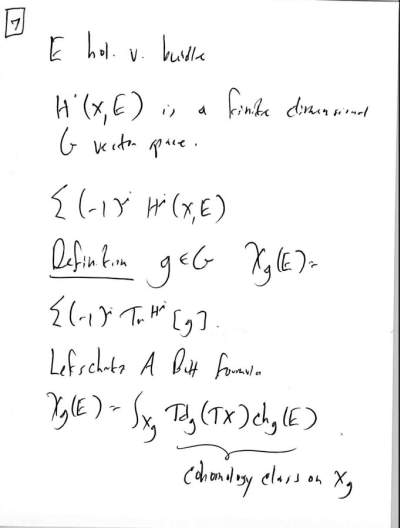 7
E hol. v. bundle
H^i(X,E) is a finite dimensional
G vector space.
Σ(-1)^i H^i(X,E)
Definition g∈G χ_g(E)=
Σ(-1)^i Tr^{H^i}[g].
Lefschetz A Bott formula
χ_g(E) = ∫_{X_g} Td_g(TX) ch_g(E).
cohomology class on X_g